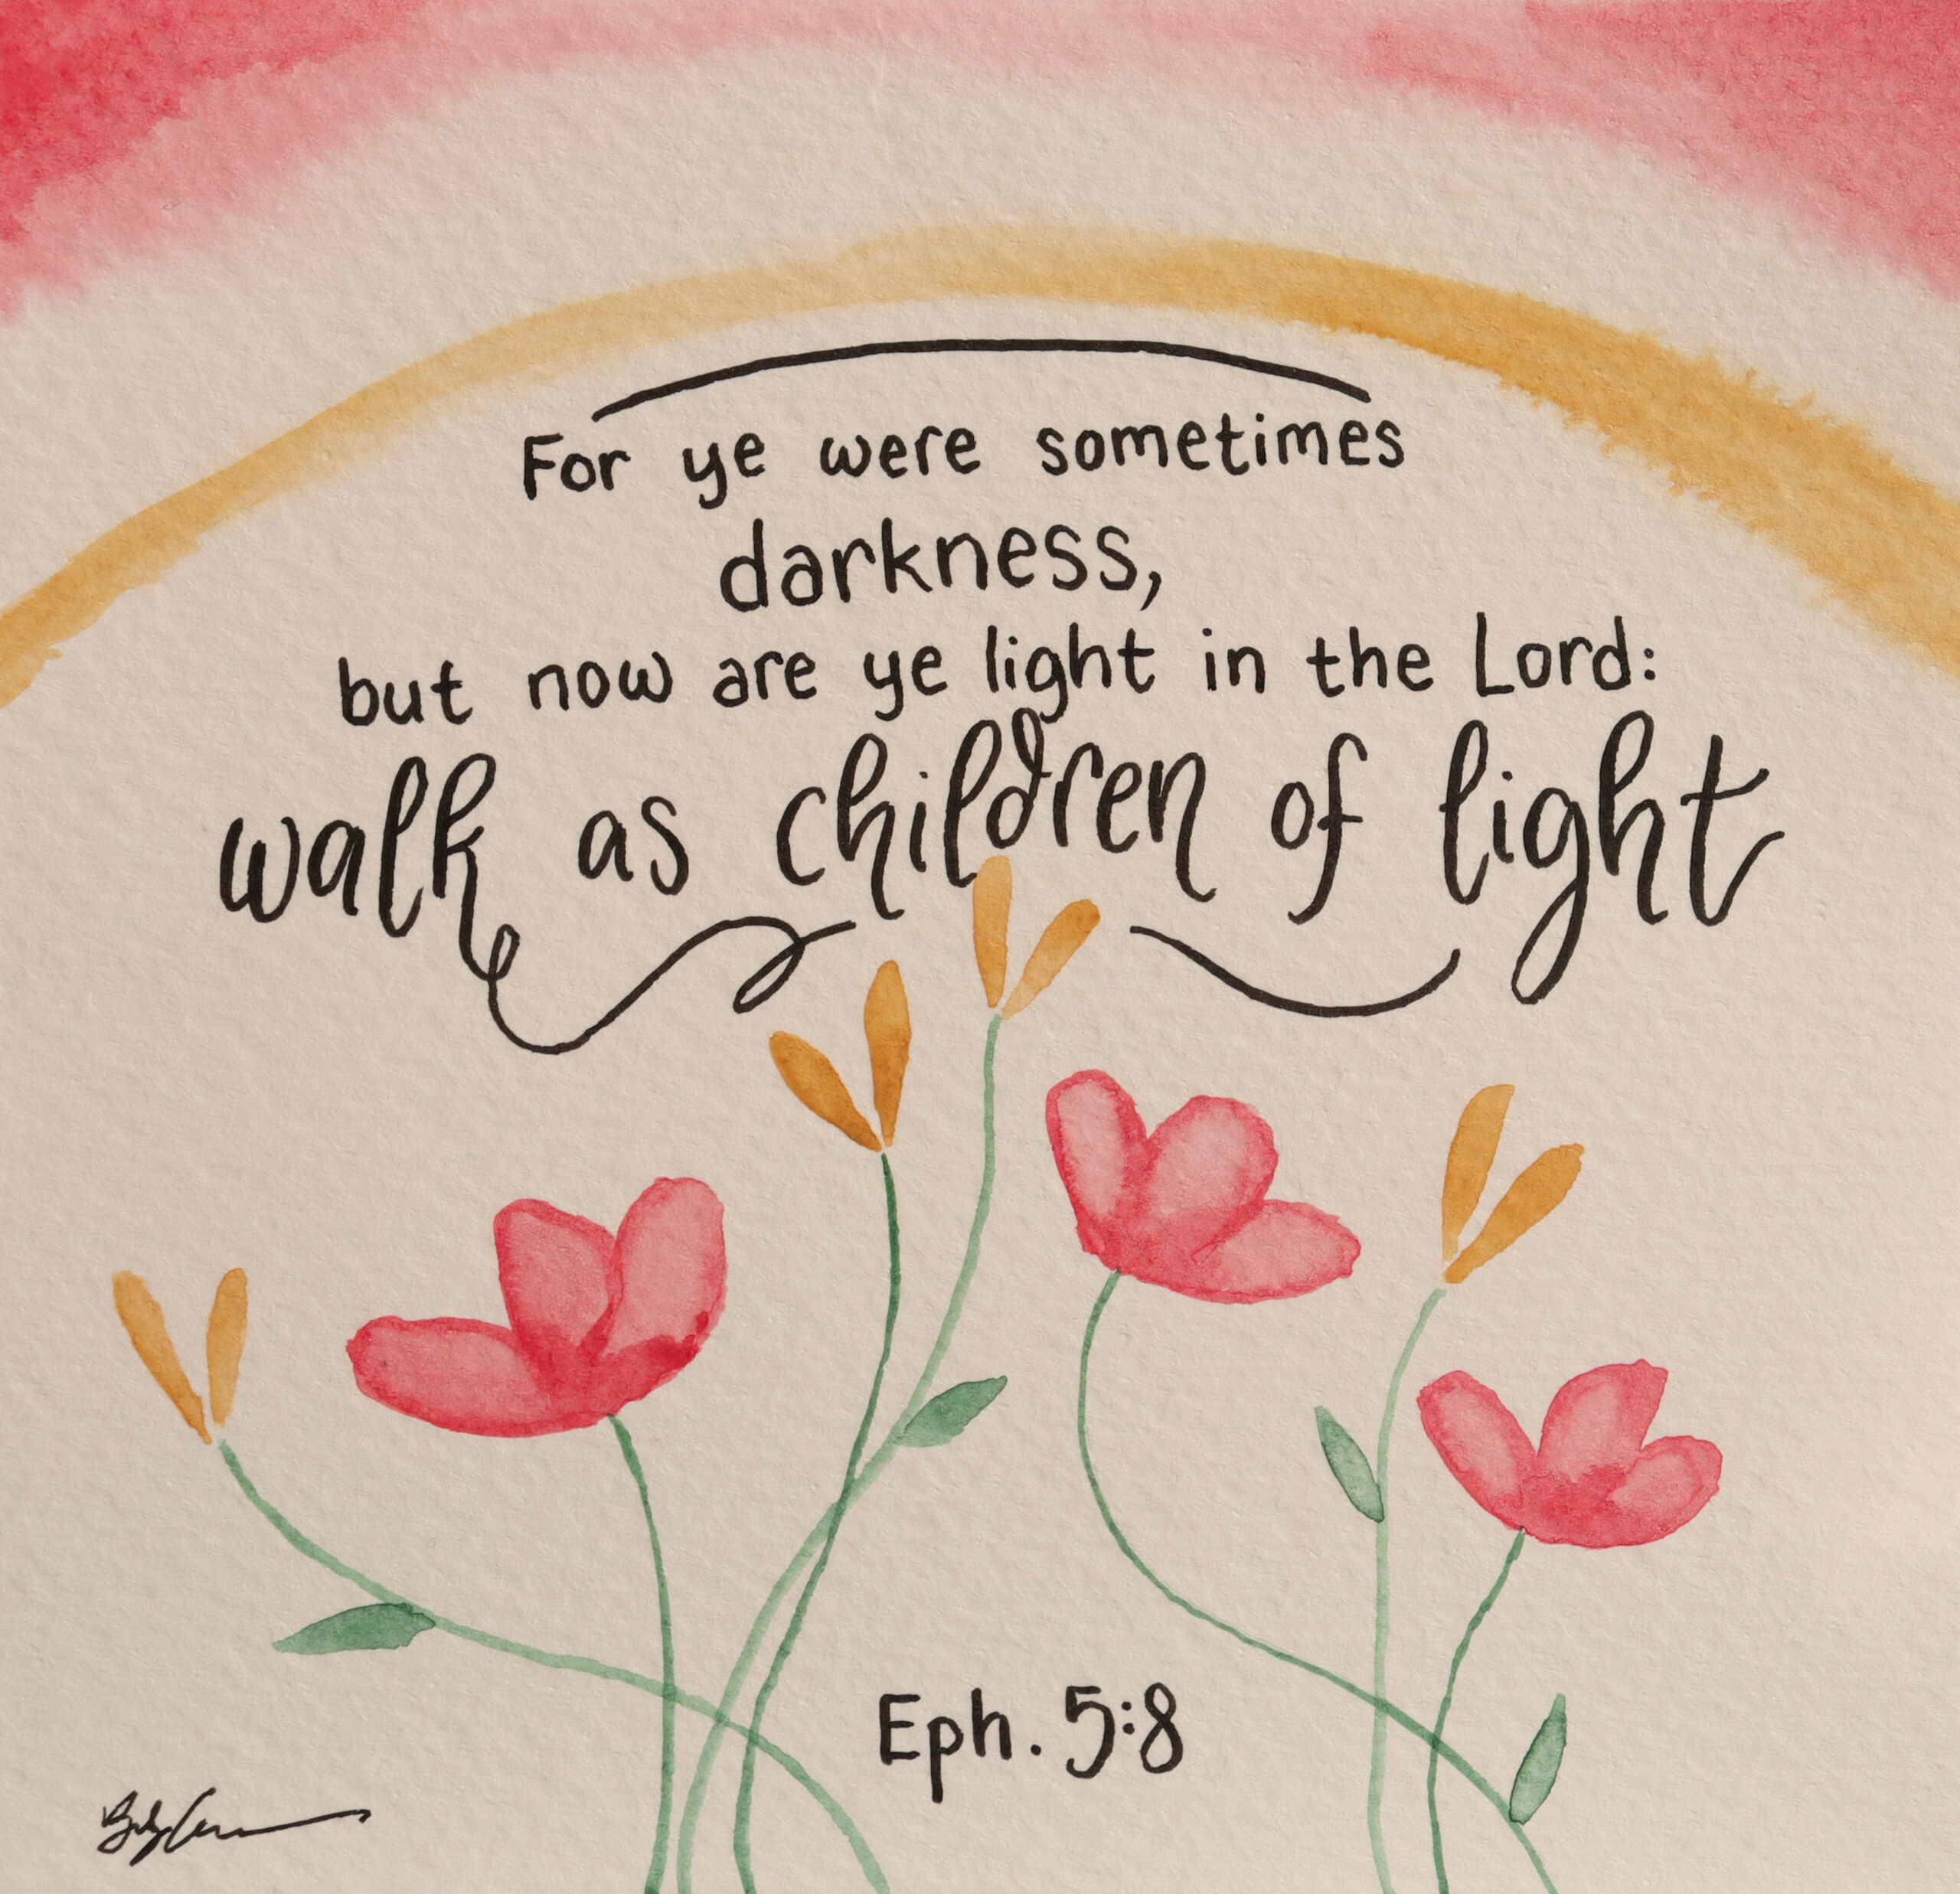 For ye were sometimes
darkness,
but now are ye light in the Lord:
walk as children of light
Eph. 5:8